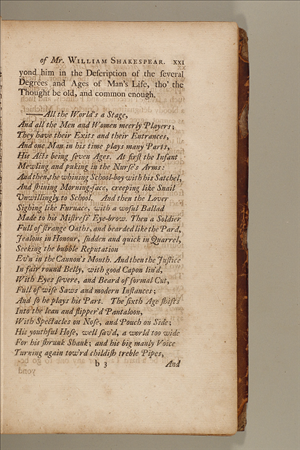 of Mr. WILLIAM SHAKESPEAR. xxi
yond him in the Deſcription of the ſeveral
Degrees and Ages of Man's Life, tho' the
Thought be old, and common enough.
——All the World's a Stage,
And all the Men and Women meerly Players;
They have their Exits and their Entrances,
And one Man in his time plays many Parts,
His Acts being ſeven Ages. At firſt the Infant
Mewling and puking in the Nurſe's Arms:
And then, the whining School-boy with his Satchel,
And ſhining Morning-face, creeping like Snail
Unwillingly to School. And then the Lover
Sighing like Furnace, with a woful Ballad
Made to his Miſtreſs' Eye-brow. Then a Soldier
Full of ſtrange Oaths, and bearded like the Pard,
Jealous in Honour, ſudden and quick in Quarrel,
Seeking the bubble Reputation
Ev'n in the Cannon's Mouth. And then the Juſtice
In fair round Belly, with good Capon lin'd,
With Eyes ſevere, and Beard of formal Cut,
Full of wiſe Saws and modern Inſtances;
And ſo he plays his Part. The ſixth Age ſhifts
Into the lean and ſlipper'd Pantaloon,
With Spectacles on Noſe, and Pouch on Side;
His youthful Hoſe, well ſav'd, a world too wide
For his ſhrunk Shank; and his big manly Voice
Turning again tow'rd childiſh treble Pipes,
b 3 And